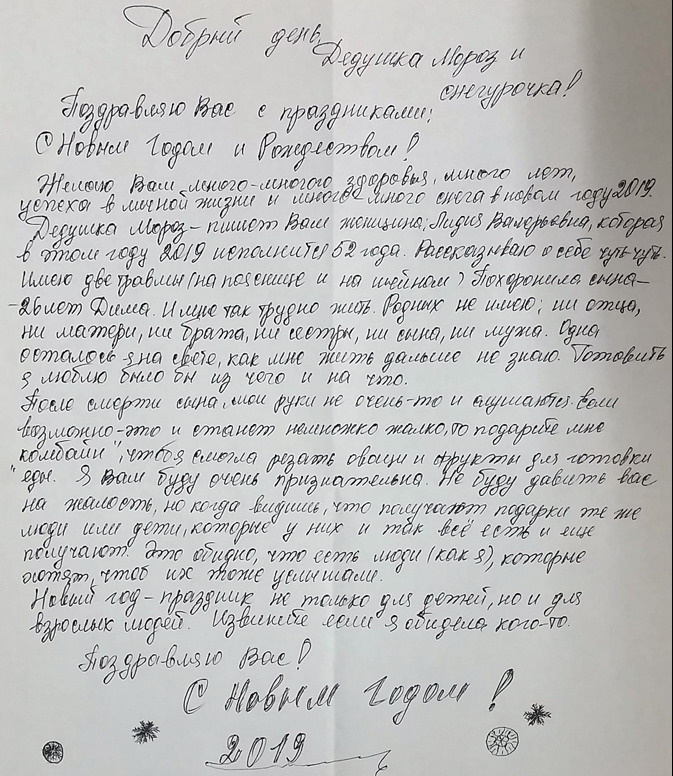 Добрый день,
Дедушка Мороз и
снегурочка!
Поздравляю Вас с праздниками:
С Новым Годом и Рождеством!
Желаю Вам много-много здоровья, много лет,
успеха в личной жизни и много-много снега в новом году 2019.
Дедушка Мороз - пишет Вам женщина; Лидия Валерьевна, которая
в этом году 2019 исполнится 52 года. Рассказываю о себе чуть-чуть.
Имею две травмы (на пояснице и на шейном) Похоронила сына-
-26 лет Дима. И мне так трудно жить. Родных не имею; ни отца,
ни матери, ни брата, ни сестры, ни сына, ни мужа. Одна
осталось я на свете, как мне жить дальше не знаю. Готовить
я люблю было бы из чего и на что.
После смерти сына, мои руки не очень-то и слушаются. Если
возможно-это и станет немножко жалко, то подарите мне
"комбайн", чтоб я смогла резать овощи и фрукты для готовки
еды. Я Вам буду очень признательна. Не буду давить вас
на жалость, но когда видишь, что получают подарки те же
люди или дети, которые у них и так всё есть и еще
получают. Это обидно, что есть люди (как я), которые
хотят, чтоб их тоже услышали.
Новый год - праздник не только для детей, но и для
взрослых людей. Извините если я обидела кого-то.
Поздравляю Вас!
С Новым Годом!
2019